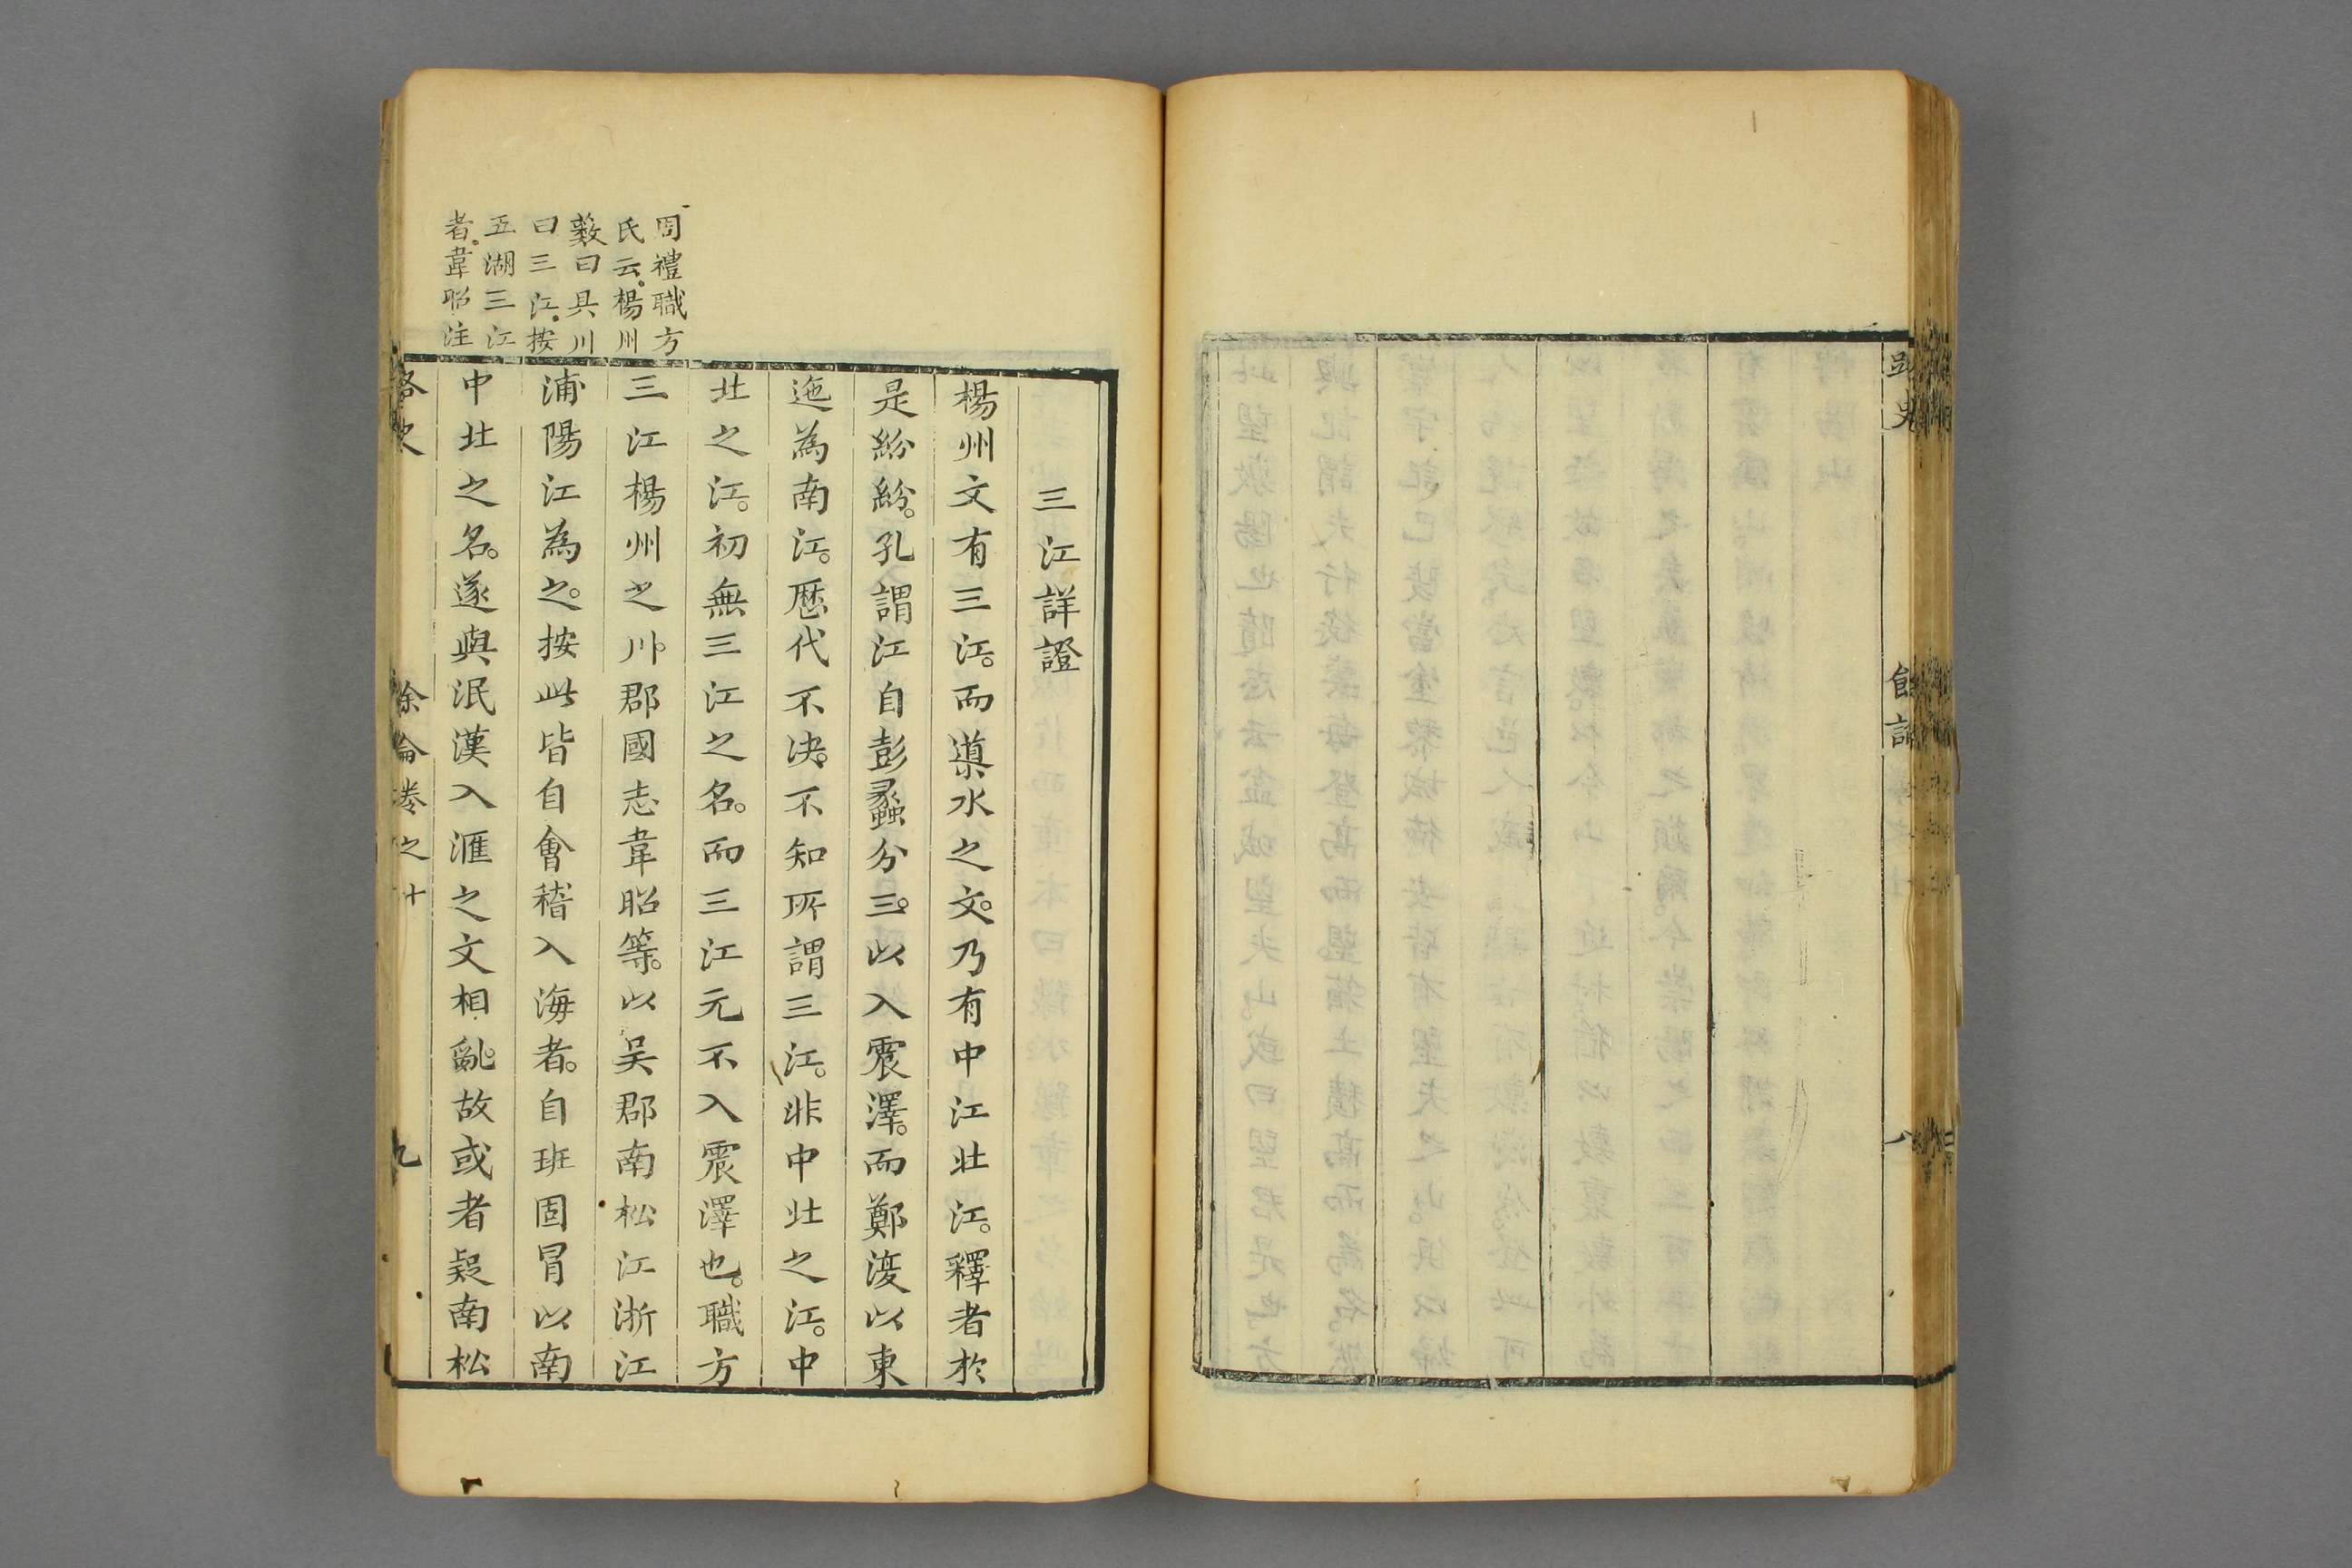 周禮職方
氏云楊州
藪曰具川
曰三江按
五湖三江
者韋昭注
三江詳證
楊州文有三江。而導水之文。乃有中江北江。釋者於
是紛紛。孔謂江自彭蠡分三。以入震澤。而鄭漢以東
迤為南江。歷代不決。不知所謂三江。非中北之江。中
北之江。初無三江之名。而三江元不入震澤也。職方
三江楊州之川。郡國志韋昭等。以吳郡南松江浙江
浦陽江為之。按此皆自會稽入海者。自班固冒以南
中北之名。遂與泯漢入滙之文相亂。故或者疑南松
路史
餘論卷之十
九